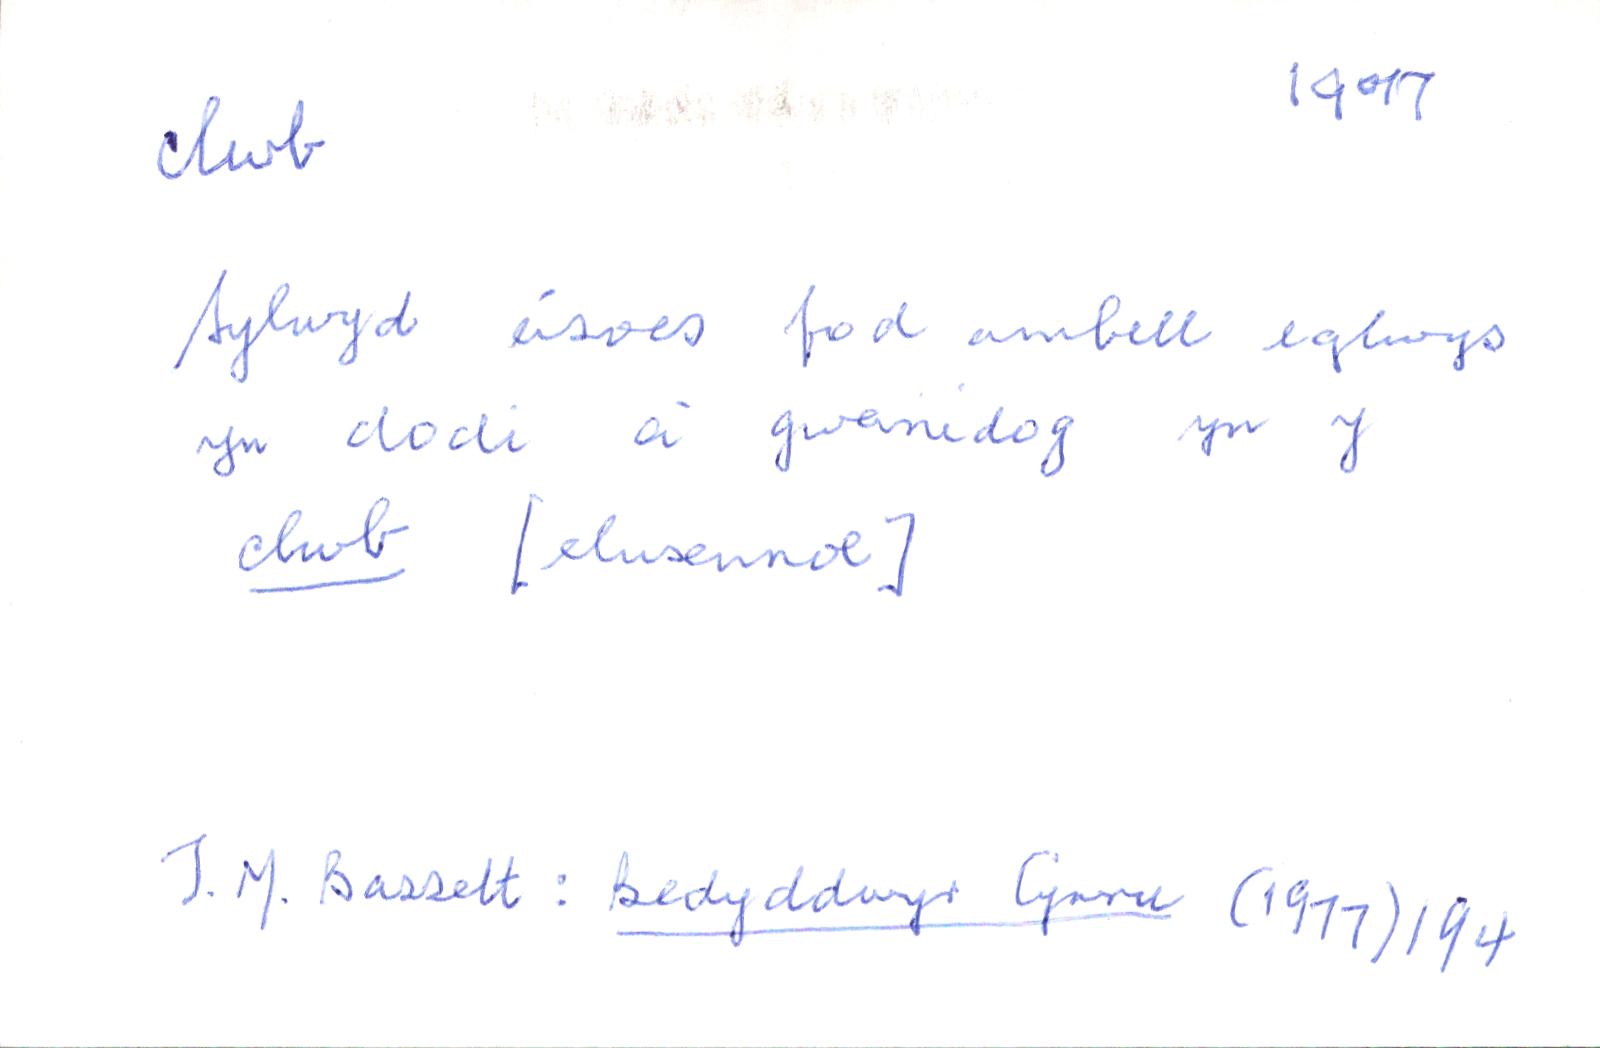 1977
clwb
Sylwyd eisoes fod ambell eglwys
yn dodi ei gweinidog yn y
clwb [elusennol]
T. M. Bassett : Bedyddwyr Cymru (1977) 194